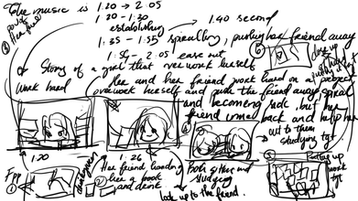 The music is 1.20 → 2.05
1.20 - 1.30
establishing
1.40 second
1.35 - 1.55 spiralling, pushing her friend away
1.55 - 2.05 ease out
Story of a girl that overwork herself
work hard
Her and her friend work hard on a project
overwork herself and push the friend away spiral
and becoming sick, but her
friend come back and help her
out to them
studying tgt
1.20
1.26
Her friend handing
her a book
and drink
Both sitting and
studying
look up to the friend.
FPP
close up